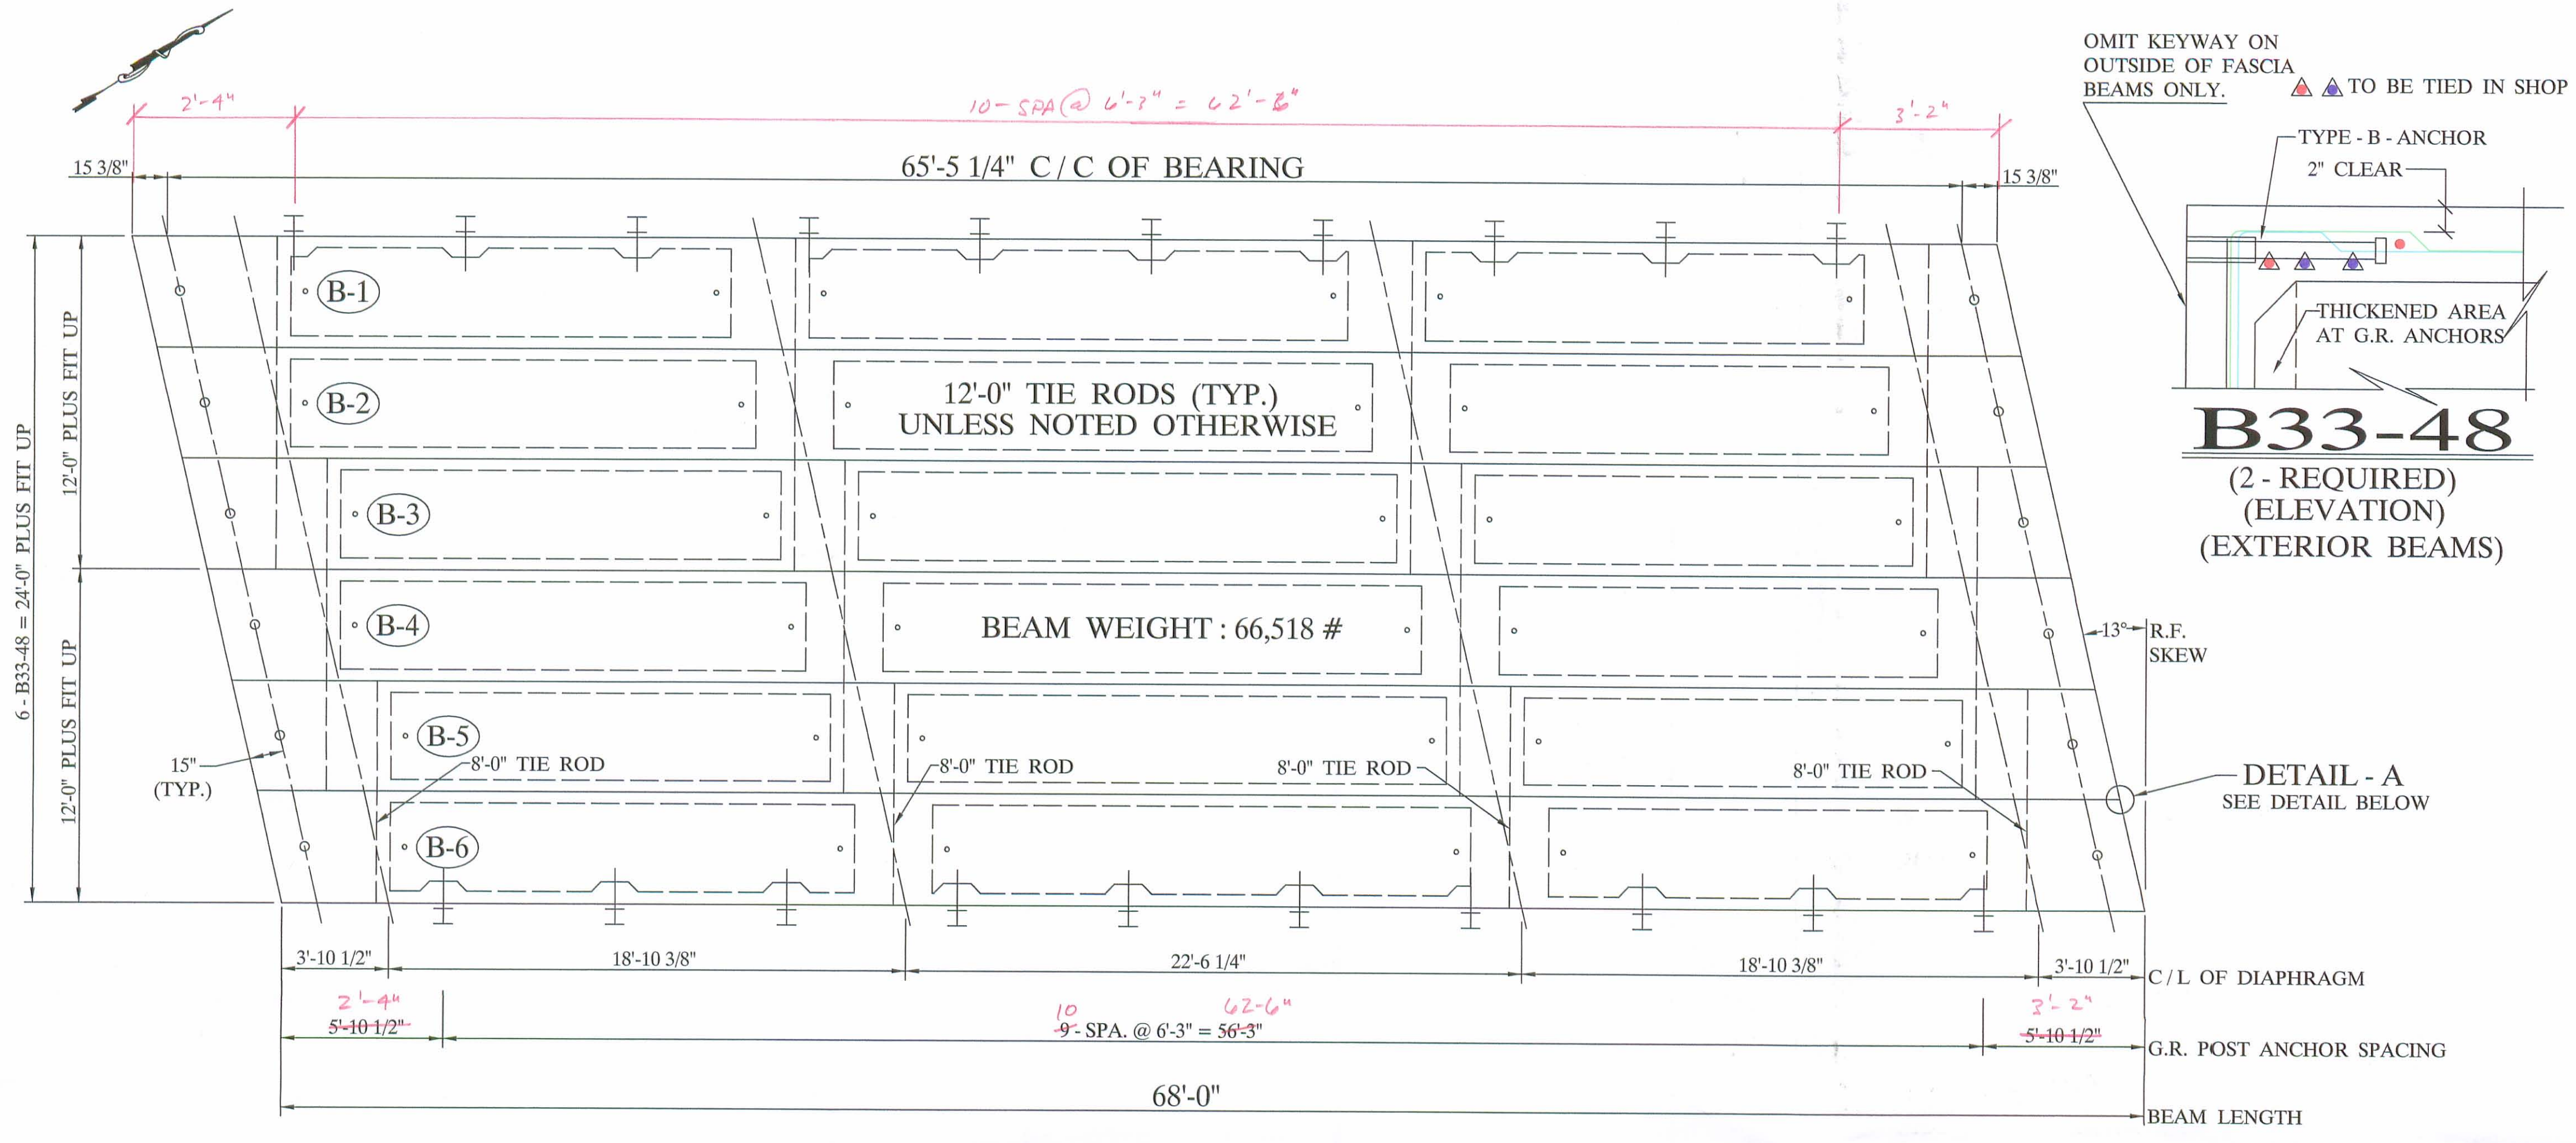 2'-4"
10-SPA @ 6'-3" = 62'-6"
3'-2"
15 3/8"
65'-5 1/4" C / C OF BEARING
15 3/8"
OMIT KEYWAY ON
OUTSIDE OF FASCIA
BEAMS ONLY.
TO BE TIED IN SHOP
TYPE - B - ANCHOR
2" CLEAR
THICKENED AREA
AT G.R. ANCHORS
B33-48
(2 - REQUIRED)
(ELEVATION)
(EXTERIOR BEAMS)
6 - B33-48 = 24'-0" PLUS FIT UP
12'-0" PLUS FIT UP
12'-0" PLUS FIT UP
B-1
B-2
12'-0" TIE RODS (TYP.)
UNLESS NOTED OTHERWISE
B-3
B-4
BEAM WEIGHT : 66,518 #
13°
R.F.
SKEW
B-5
15"
(TYP.)
8'-0" TIE ROD
8'-0" TIE ROD
8'-0" TIE ROD
8'-0" TIE ROD
DETAIL - A
SEE DETAIL BELOW
B-6
3'-10 1/2"
18'-10 3/8"
22'-6 1/4"
18'-10 3/8"
3'-10 1/2"
C / L OF DIAPHRAGM
2'-4"
10
62-6"
3'-2"
5'-10 1/2"
9 - SPA. @ 6'-3" = 56'-3"
5'-10 1/2"
G.R. POST ANCHOR SPACING
68'-0"
BEAM LENGTH